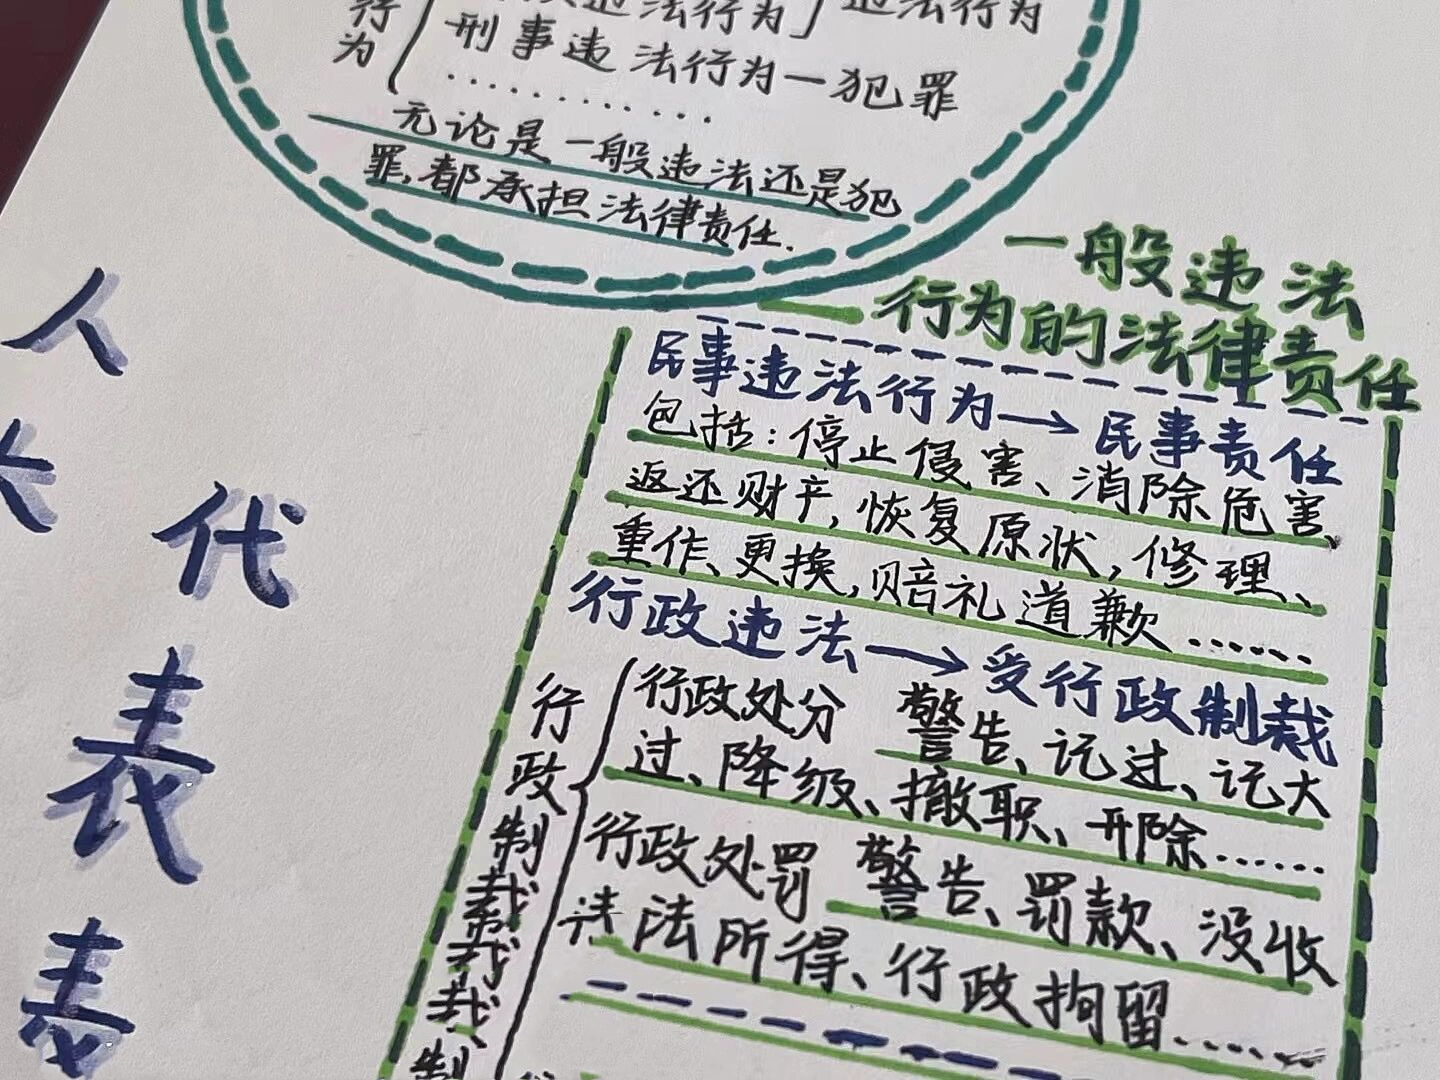 行为
违法行为
违法行为
刑事违法行为一犯罪
…………
无论是一般违法还是犯
罪,都承担法律责任.
一般违法
行为的法律责任
民事违法行为→民事责任
包括:停止侵害、消除危害、
返还财产,恢复原状,修理、
重作、更换,赔礼道歉……
行政违法→受行政制裁
行政处分 警告、记过、记大
过、降级、撤职、开除……
行政处罚 警告、罚款、没收
违法所得、行政拘留……
行政制裁
人
代
表
表